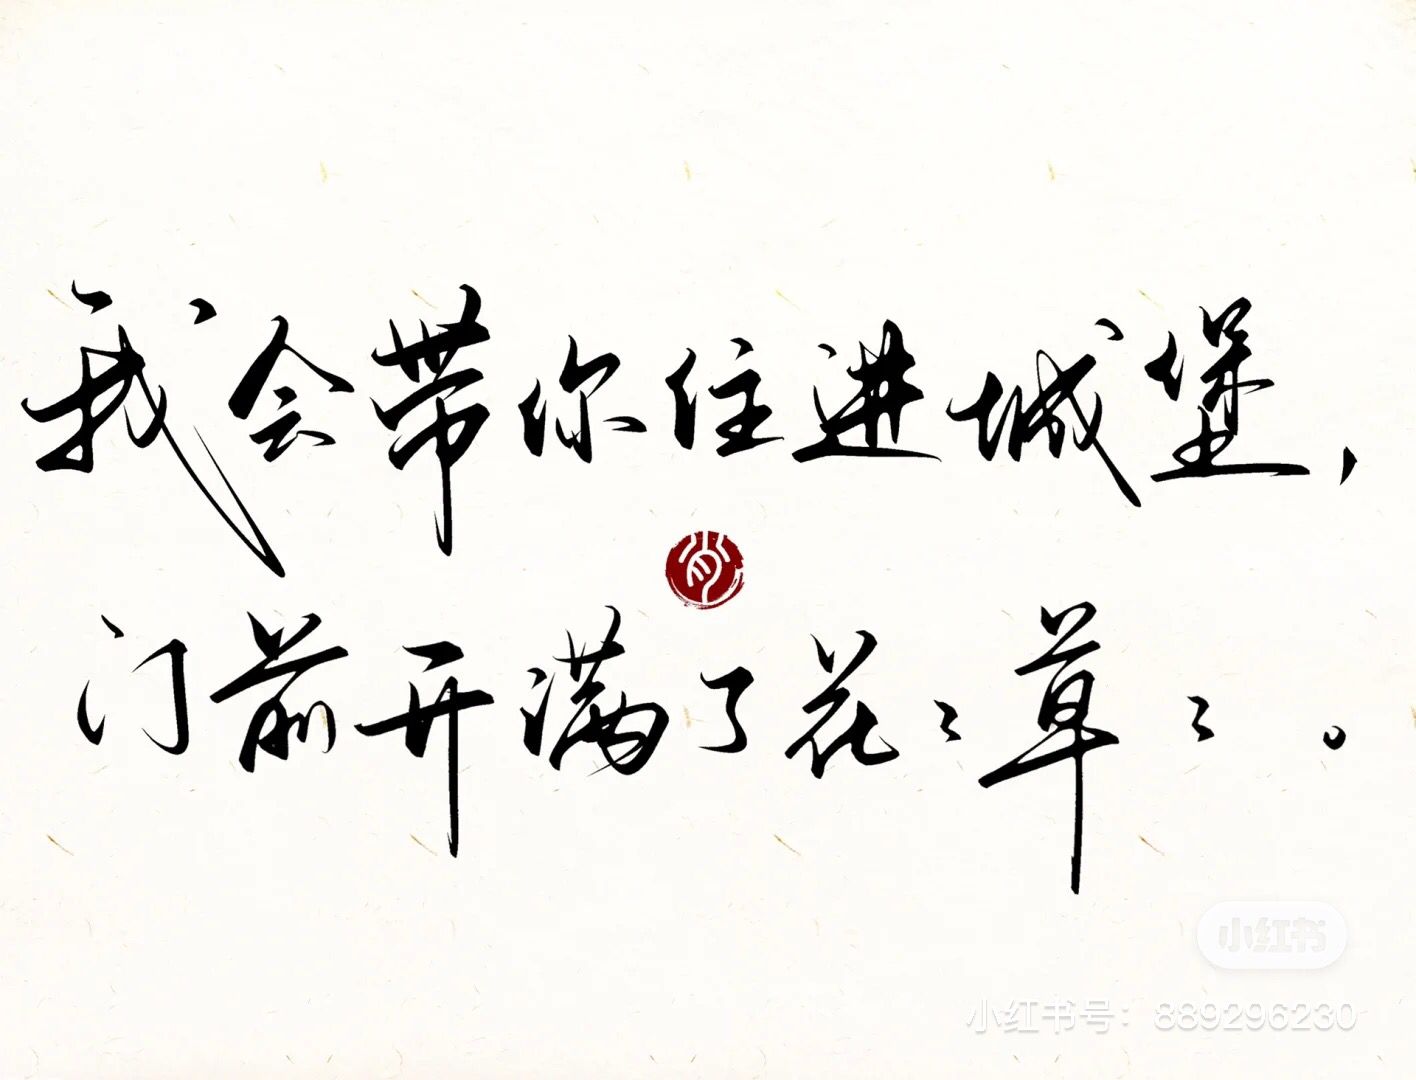 我会带你住进城堡，
门前开满了花々草々。
小红书
小红书号：889296230